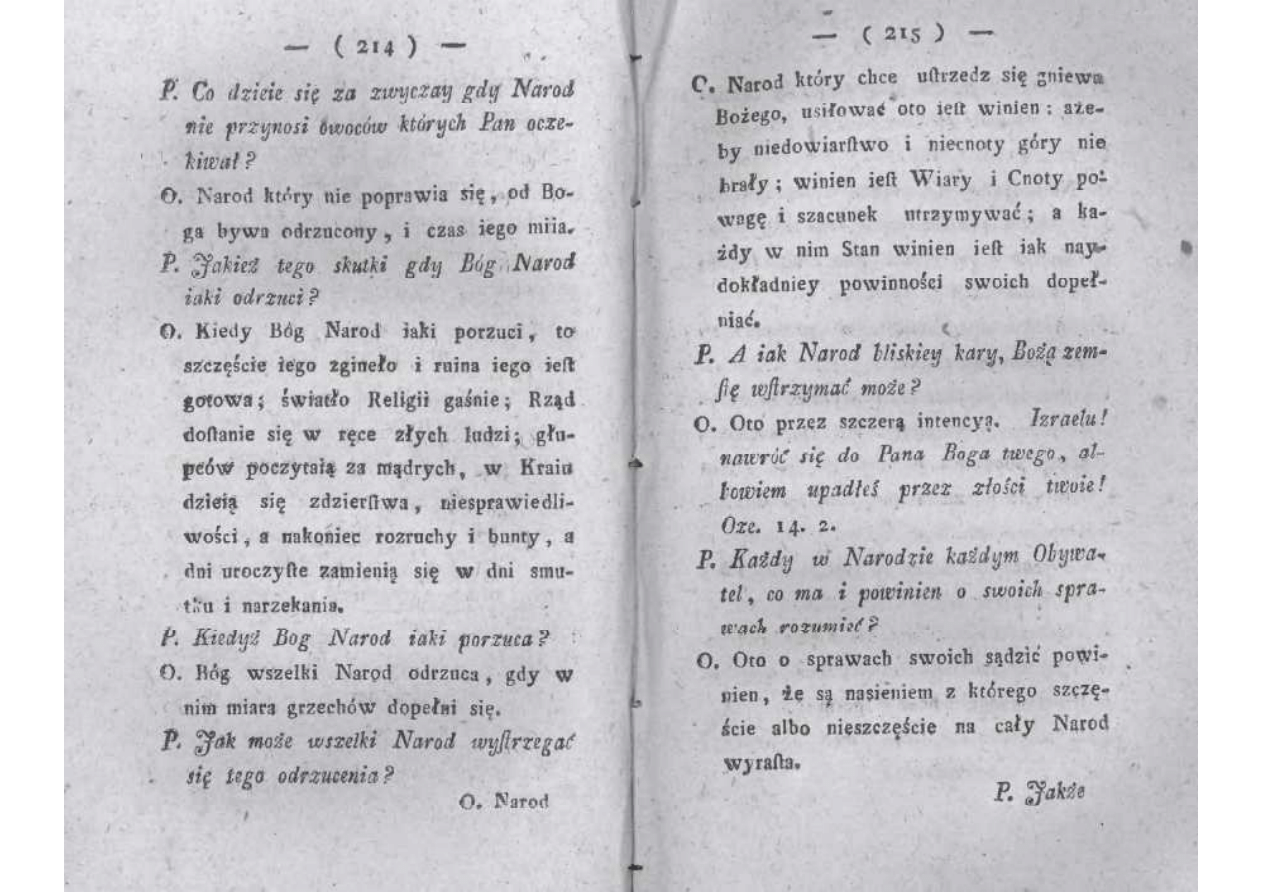 — ( 214 ) —
P. Co dzieie się za zwyczay gdy Narod
nie przynosi owoców których Pan ocze-
kiwał?
O. Narod który nie poprawia się, od Bo-
ga bywa odrzucony, i czas iego miia.
P. Jakież tego skutki gdy Bóg Narod
iaki odrzuci?
O. Kiedy Bóg Narod iaki porzuci, to
szczęście iego zgineło i ruina iego ieſt
gotowa; światło Religii gaśnie; Rząd
doſtanie się w ręce złych ludzi; głu-
pców poczytaią za mądrych, w Kraiu
dzieią się zdzierſtwa, niesprawiedli-
wości, a nakoniec rozruchy i bunty, a
dni uroczyſte zamienią się w dni smu-
tku i narzekania.
P. Kiedyż Bog Narod iaki porzuca?
O. Bóg wszelki Narod odrzuca, gdy w
nim miara grzechów dopełni się.
P. Jak może wszelki Narod wyſtrzegać
się tego odrzucenia?
O. Narod
— ( 215 ) —
O. Narod który chce uſtrzedz się gniewu
Bożego, usiłować oto ieſt winien: aże-
by niedowiarſtwo i niecnoty góry nie
brały; winien ieſt Wiary i Cnoty po-
wagę i szacunek utrzymywać; a ka-
żdy w nim Stan winien ieſt iak nay-
dokładniey powinności swoich dopeł-
niać.
P. A iak Narod bliskiey kary, Bożą zem-
ſię wſtrzymać może?
O. Oto przez szczerą intencyą. Izraelu!
nawróć się do Pana Boga twego, al-
bowiem upadłeś przez złości twoie!
Oze. 14. 2.
P. Każdy w Narodzie każdym Obywa-
tel, co ma i powinien o swoich spra-
wach rozumieć?
O. Oto o sprawach swoich sądzić powi-
nien, że są nasieniem z którego szczę-
ście albo nieszczęście na cały Narod
wyraſta.
P. Jakże